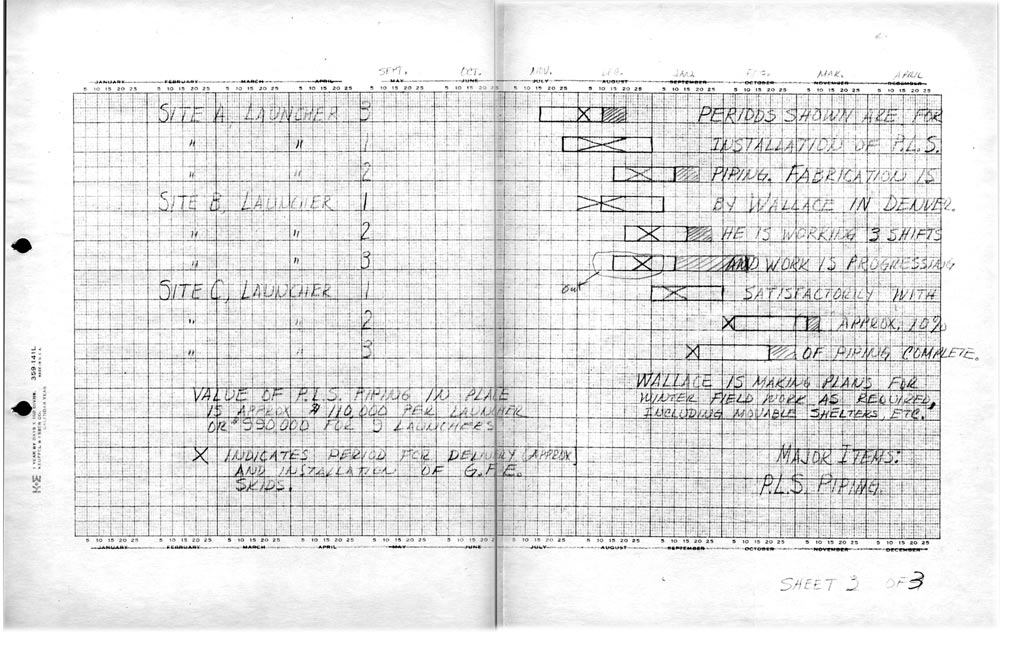 SEPT. OCT. NOV. DEC. JAN. FEB. MAR. APRIL
JANUARY FEBRUARY MARCH APRIL MAY JUNE JULY AUGUST SEPTEMBER OCTOBER NOVEMBER DECEMBER
5 10 15 20 25 5 10 15 20 25 5 10 15 20 25 5 10 15 20 25 5 10 15 20 25 5 10 15 20 25 5 10 15 20 25 5 10 15 20 25 5 10 15 20 25 5 10 15 20 25 5 10 15 20 25 5 10 15 20 25
SITE A, LAUNCHER 3
" " 1
" " 2
SITE B, LAUNCHER 1
" " 2
" " 3
out
SITE C, LAUNCHER 1
" " 2
" " 3
PERIODS SHOWN ARE FOR
INSTALLATION OF P.L.S.
PIPING. FABRICATION IS
BY WALLACE IN DENVER.
HE IS WORKING 3 SHIFTS
AND WORK IS PROGRESSING
SATISFACTORILY WITH
APPROX. 10%
OF PIPING COMPLETE.
WALLACE IS MAKING PLANS FOR
WINTER FIELD WORK AS REQUIRED,
INCLUDING MOVABLE SHELTERS, ETC.
VALUE OF P.L.S. PIPING IN PLACE
IS APPROX $110,000 PER LAUNCHER
OR $990,000 FOR 9 LAUNCHERS
X INDICATES PERIOD FOR DELIVERY (APPROX)
AND INSTALLATION OF G.F.E.
SKIDS.
MAJOR ITEMS:
P.L.S. PIPING.
5 10 15 20 25 5 10 15 20 25 5 10 15 20 25 5 10 15 20 25 5 10 15 20 25 5 10 15 20 25 5 10 15 20 25 5 10 15 20 25 5 10 15 20 25 5 10 15 20 25 5 10 15 20 25 5 10 15 20 25
JANUARY FEBRUARY MARCH APRIL MAY JUNE JULY AUGUST SEPTEMBER OCTOBER NOVEMBER DECEMBER
SHEET OF 3
K+E
359-141L